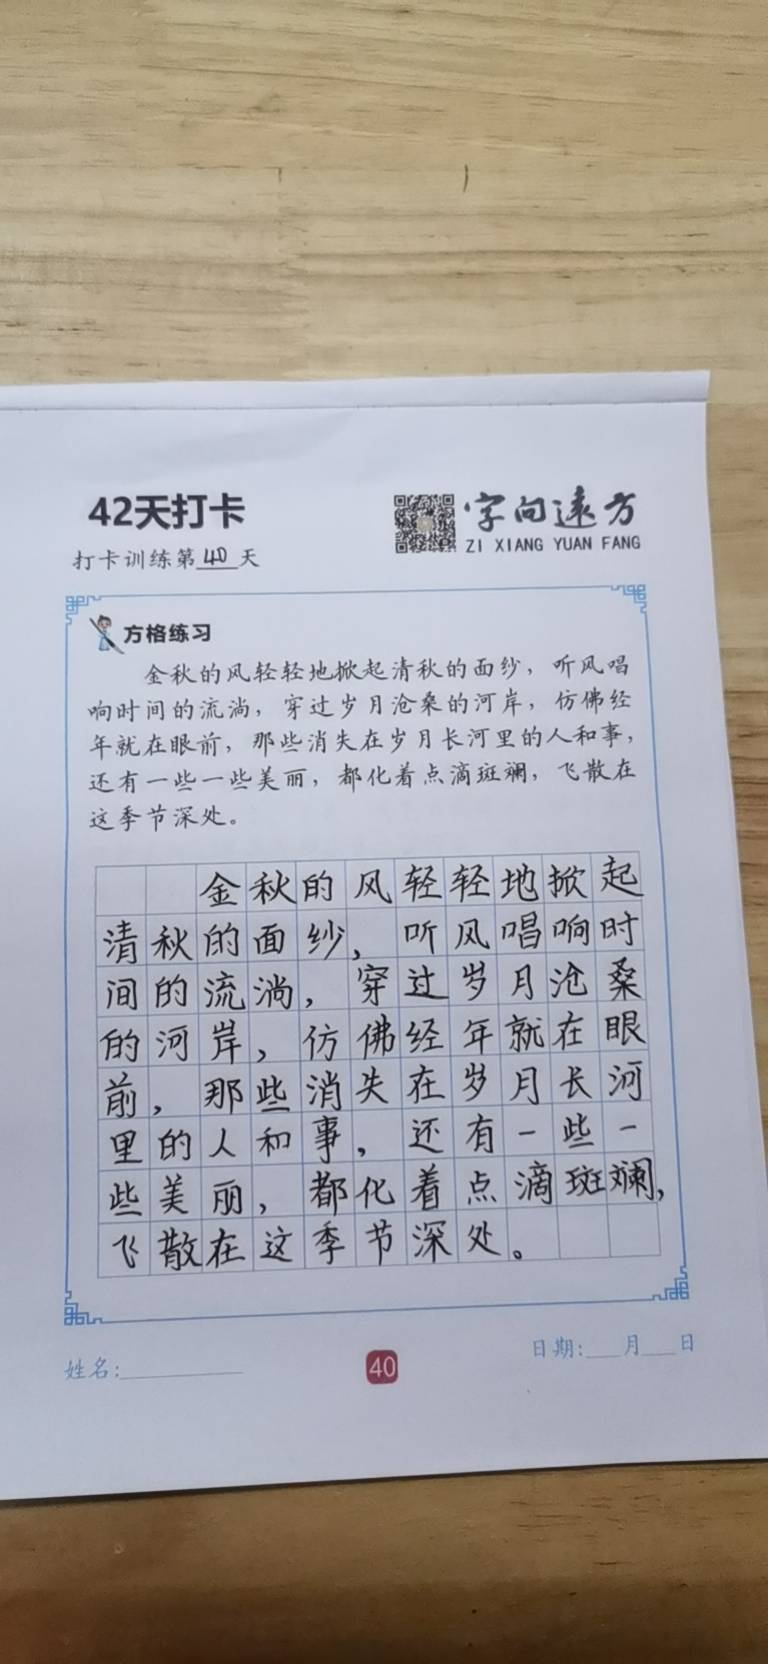 42天打卡
字向远方
ZI XIANG YUAN FANG
打卡训练第40天
方格练习
金秋的风轻轻地掀起清秋的面纱，听风唱
响时间的流淌，穿过岁月沧桑的河岸，仿佛经
年就在眼前，那些消失在岁月长河里的人和事，
还有一些一些美丽，都化着点滴斑斓，飞散在
这季节深处。
金秋的风轻轻地掀起
清秋的面纱，听风唱响时
间的流淌，穿过岁月沧桑
的河岸，仿佛经年就在眼
前，那些消失在岁月长河
里的人和事，还有一些一
些美丽，都化着点滴斑斓，
飞散在这季节深处。
姓名:
40
日期:___月___日